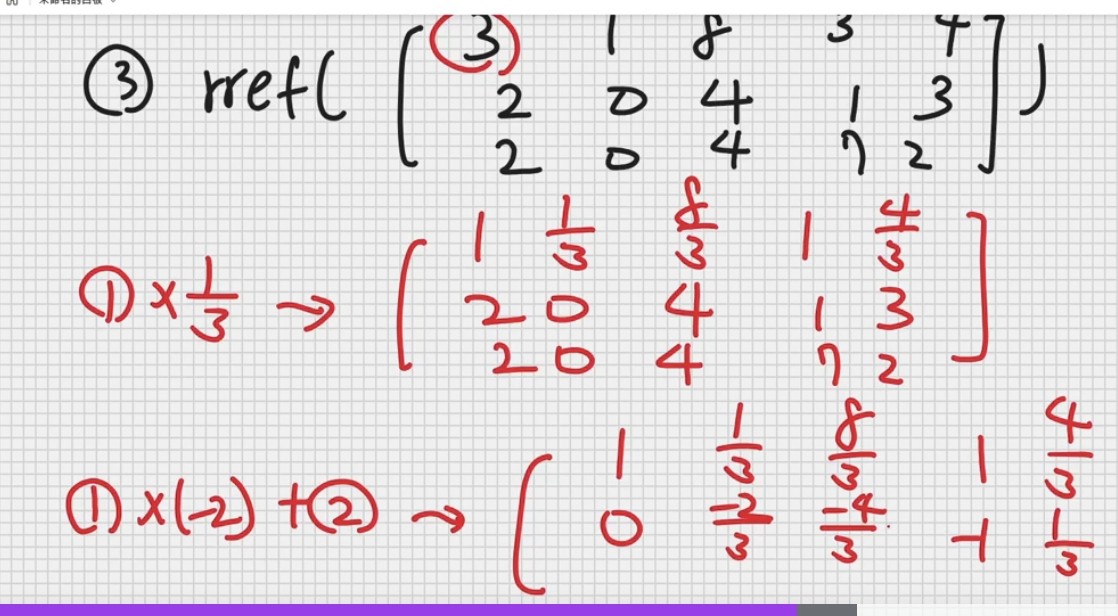 未命名的白板
③ rref( [ 3 1 8 3 4
2 0 4 1 3
2 0 4 7 2 ] )
① × 1/3 → [ 1 1/3 8/3 1 4/3
2 0 4 1 3
2 0 4 7 2 ]
① × (-2) + ② → [ 1 1/3 8/3 1 4/3
0 -2/3 -4/3 -1 1/3